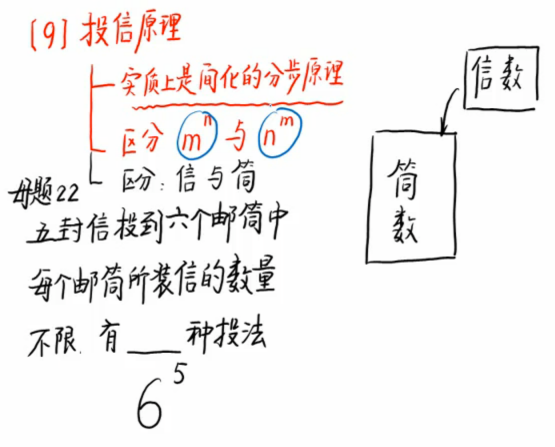 [9] 投信原理
实质上是简化的分步原理
区分 mⁿ 与 nᵐ
区分:信与筒
母题22
五封信投到六个邮筒中
每个邮筒所装信的数量
不限.有___种投法
6⁵
信数
筒数